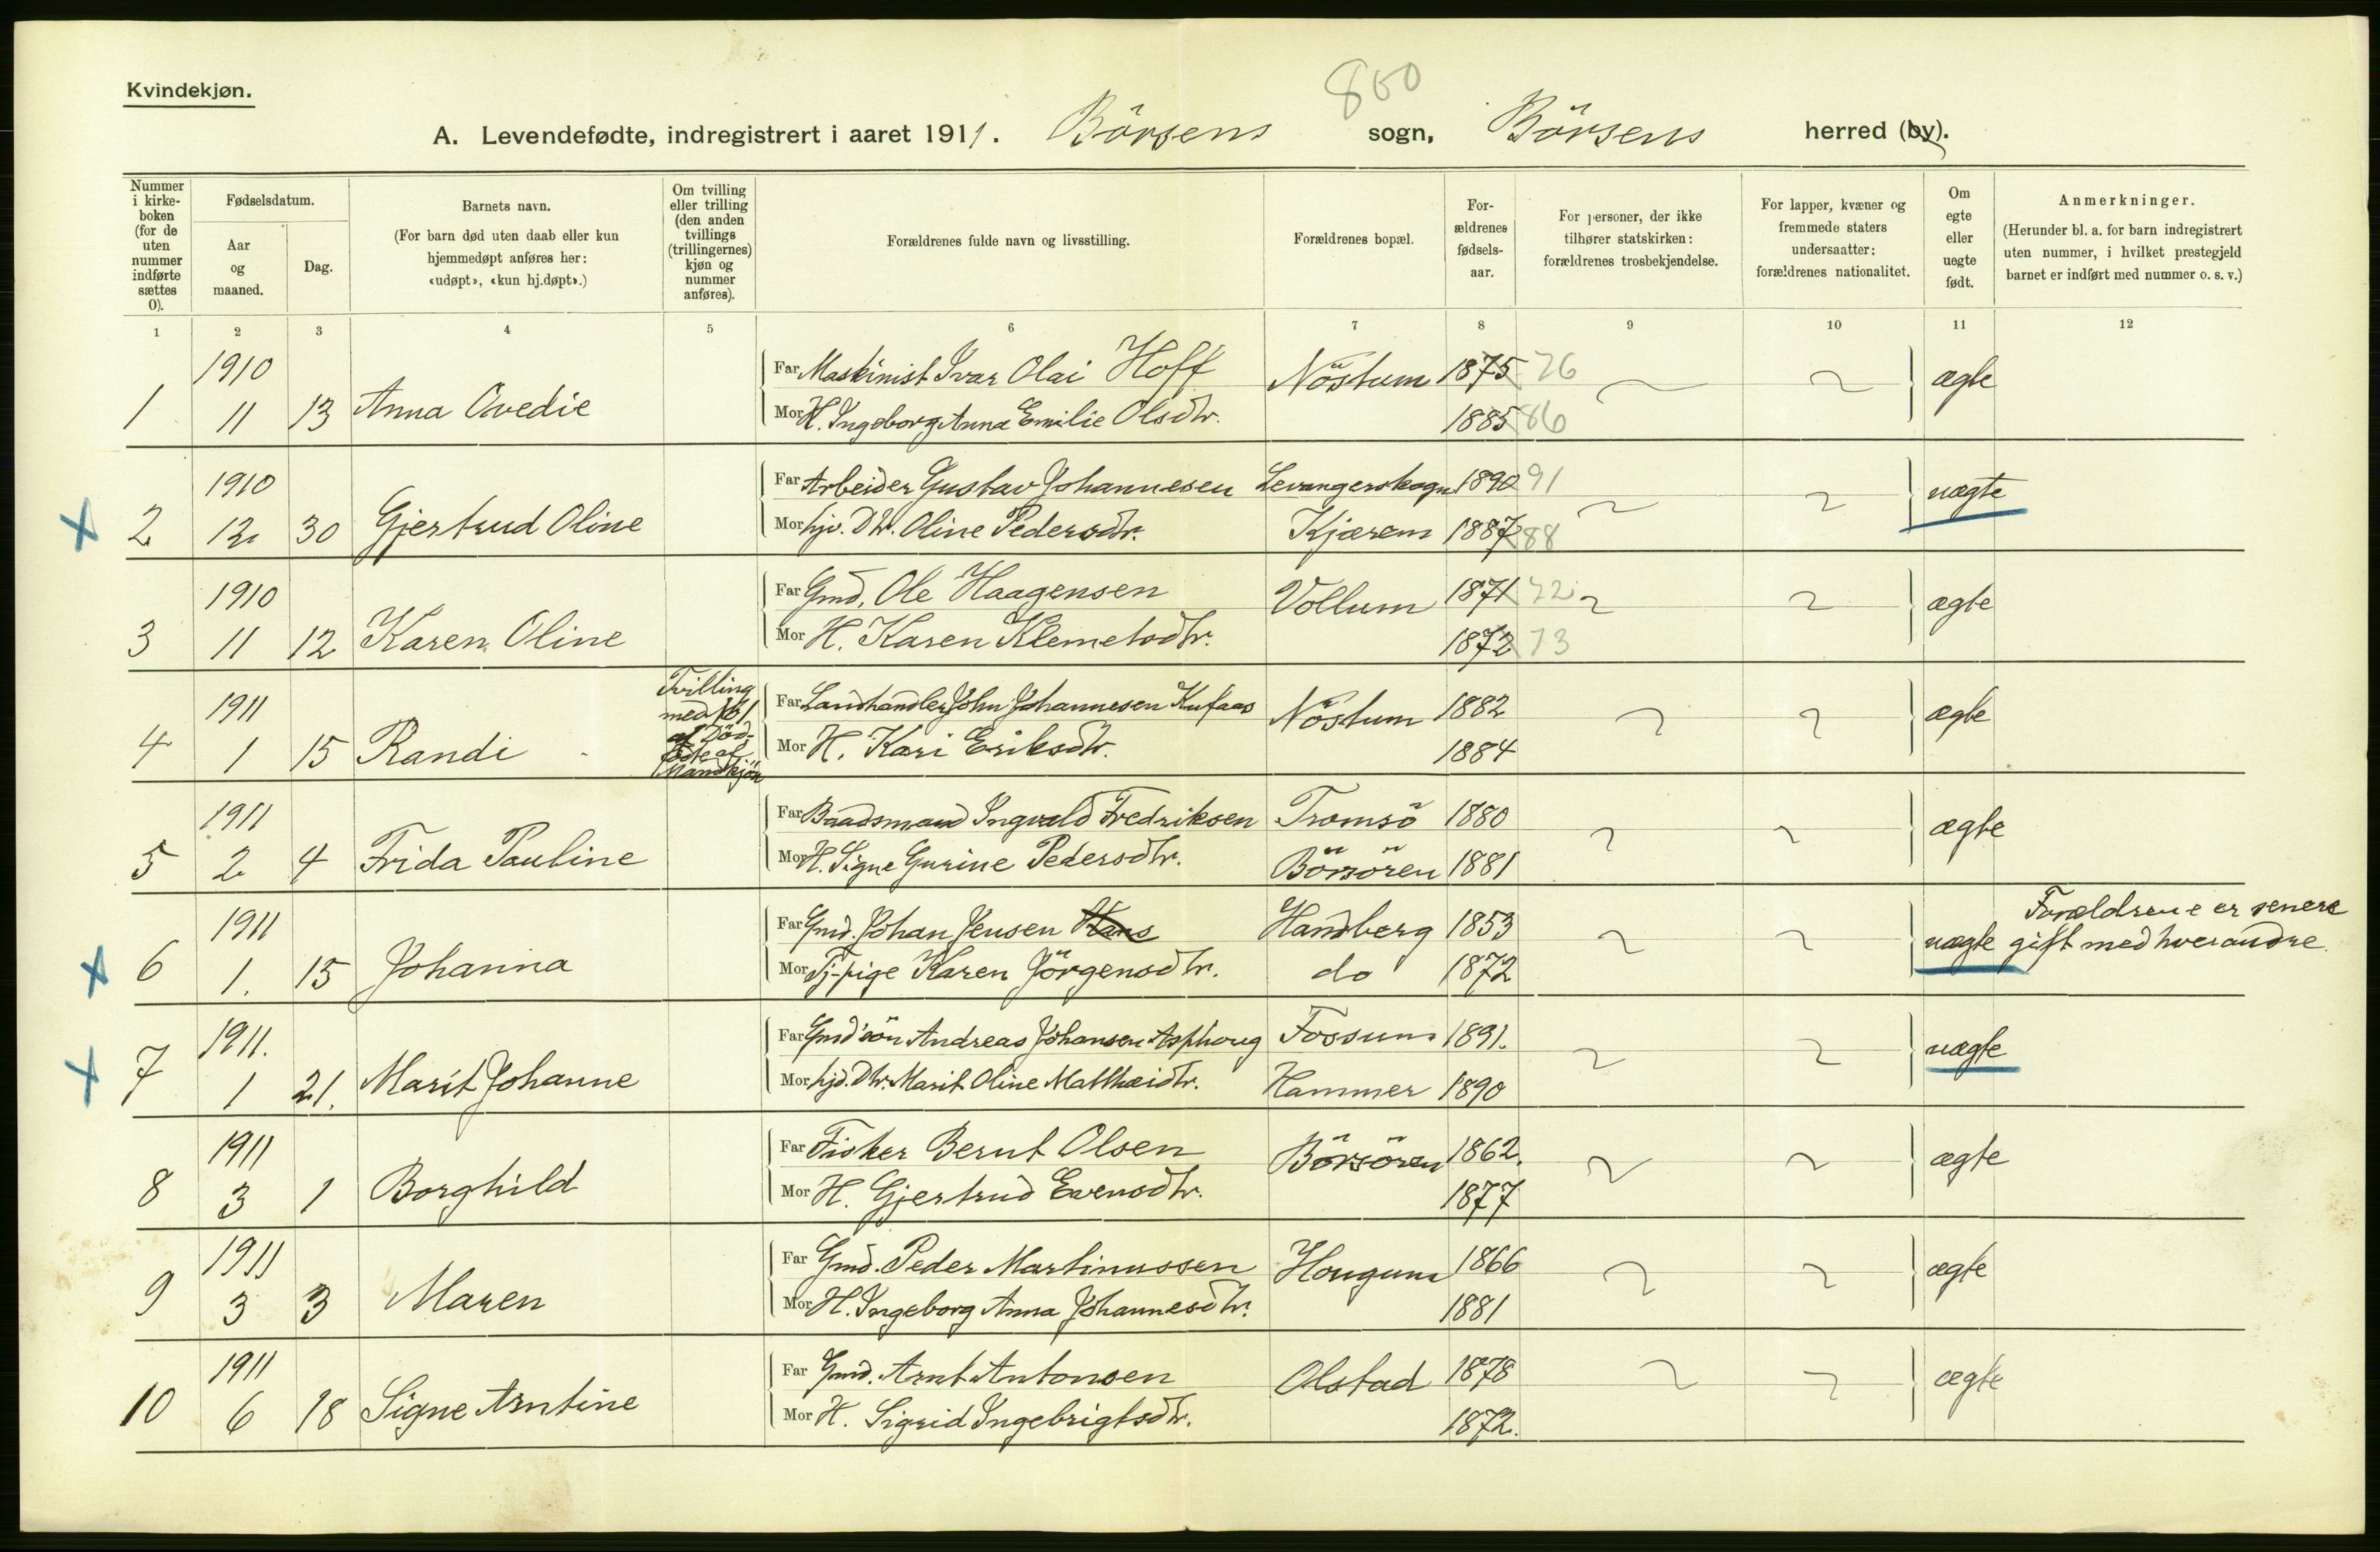 800
Kvindekjøn.
A. Levendefødte, indregistrert i aaret 1911. Börsens sogn, Börsens herred (by).
Nummer i kirke-boken (for de uten nummer indførte sættes 0).
Fødselsdatum.
Aar og maaned.
Dag.
Barnets navn.
(For barn død uten daab eller kun hjemmedøpt anføres her: «udøpt», «kun hj.døpt».)
Om tvilling eller trilling (den anden tvillings (trillingernes) kjøn og nummer anføres).
Forældrenes fulde navn og livsstilling.
Forældrenes bopæl.
For-ældrenes fødsels-aar.
For personer, der ikke tilhører statskirken: forældrenes trosbekjendelse.
For lapper, kvæner og fremmede staters undersaatter: forældrenes nationalitet.
Om egte eller uegte født.
Anmerkninger.
(Herunder bl. a. for barn indregistrert uten nummer, i hvilket prestegjeld barnet er indført med nummer o. s. v.)
1 2 3 4 5 6 7 8 9 10 11 12
1910 Far Maskinist Ivar Olai Hoff Nöstum 1875 76 ægte
1 11 13 Anna Ovedie Mor H. Ingeborg Anna Emilie Olsdtr. 1885 86
1910 Far Arbeider Gustav Johannesen Levangerskogn 1890 91 uægte
2 12 30 Gjertrud Oline Mor hjv. Dtr. Oline Pedersdtr. Kjærem 1887 88
1910 Far Gmd. Ole Haagensen Vollum 1871 72 ægte
3 11 12 Karen Oline Mor H. Karen Klemetsdtr. 1872 73
Tvilling med № 1 af Död-födte af Mandkjön
1911 Far Landhandler John Johannesen Kufaas Nöstum 1882 ægte
4 1 15 Randi Mor H. Kari Eriksdtr. 1884
1911 Far Baadsmand Ingvald Fredriksen Tromsö 1880 ægte
5 2 4 Frida Pauline Mor H. Signe Gurine Pedersdtr. Börsören 1881
1911 Far Gmd. Johan Jensen Hans Handberg 1853 uægte Forældrene er senere
6 1. 15 Johanna Mor Tj-pige Karen Jörgensdtr. do 1872 gift med hverandre.
1911. Far Gmd'sön Andreas Johansen Asphoug Fossum 1891. uægte
7 1 21. Marit Johanne Mor hjd. Dtr. Marit Oline Mathæidtr. Hammer 1890
1911 Far Fisker Bernt Olsen Börsören 1862. ægte
8 3 1 Borghild Mor H. Gjertrud Evensdtr. 1877
1911 Far Gmd. Peder Martinussen Hougum 1866 ægte
9 3 3 Maren Mor H. Ingeborg Anna Johannesdtr. 1881
1911 Far Gmd. Arnt Antonsen Olstad 1878 ægte
10 6 18 Signe Arntine Mor H. Sigrid Ingebrigtsdtr. 1872.